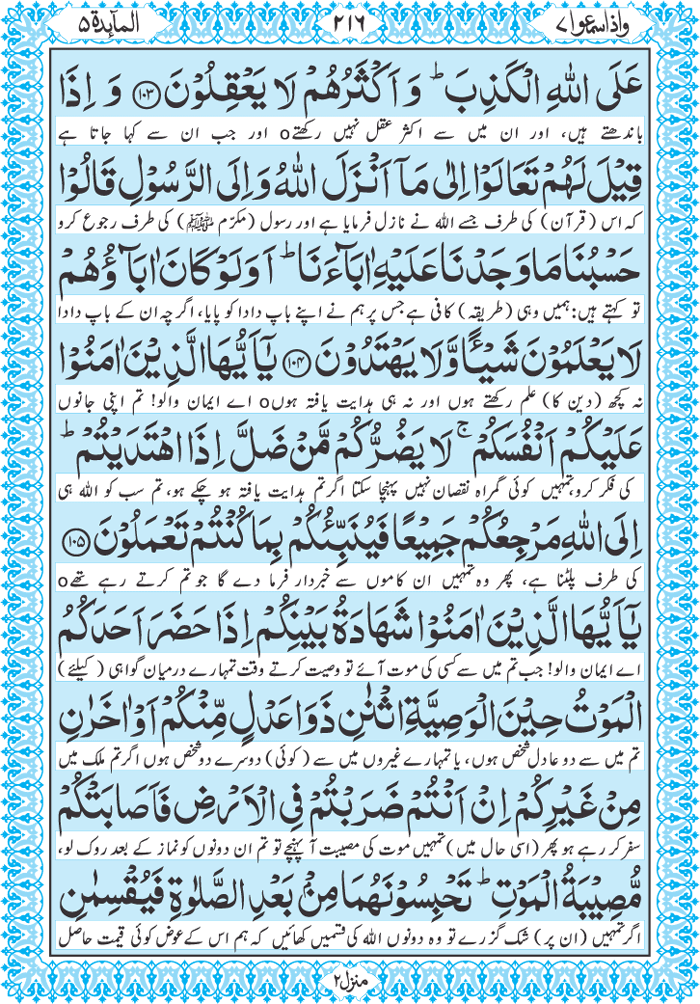 واذاسمعوا ۷
۲۱۶
المآئدة ۵
عَلَی اللّٰهِ الْكَذِبَ ؕ وَ اَكْثَرُهُمْ لَا یَعْقِلُوْنَ ﴿۱۰۳﴾ وَ اِذَا
باندھتے ہیں، اور ان میں سے اکثر عقل نہیں رکھتےo اور جب ان سے کہا جاتا ہے
قِیْلَ لَهُمْ تَعَالَوْا اِلٰی مَاۤ اَنْزَلَ اللّٰهُ وَ اِلَی الرَّسُوْلِ قَالُوْا
کہ اس (قرآن) کی طرف جسے اللہ نے نازل فرمایا ہے اور رسول (مکرّم ﷺ) کی طرف رجوع کرو
حَسْبُنَا مَا وَجَدْنَا عَلَیْهِ اٰبَآءَنَا ؕ اَوَ لَوْ كَانَ اٰبَآؤُهُمْ
تو کہتے ہیں: ہمیں وہی (طریقہ) کافی ہے جس پر ہم نے اپنے باپ دادا کو پایا، اگرچہ ان کے باپ دادا
لَا یَعْلَمُوْنَ شَیْـًٔا وَّ لَا یَهْتَدُوْنَ ﴿۱۰۴﴾ یٰۤاَیُّهَا الَّذِیْنَ اٰمَنُوْا
نہ کچھ (دین کا) علم رکھتے ہوں اور نہ ہی ہدایت یافتہ ہوںo اے ایمان والو! تم اپنی جانوں
عَلَیْكُمْ اَنْفُسَكُمْ ۚ لَا یَضُرُّكُمْ مَّنْ ضَلَّ اِذَا اهْتَدَیْتُمْ ؕ
کی فکر کرو، تمہیں کوئی گمراہ نقصان نہیں پہنچا سکتا اگر تم ہدایت یافتہ ہو چکے ہو، تم سب کو اللہ ہی
اِلَی اللّٰهِ مَرْجِعُكُمْ جَمِیْعًا فَیُنَبِّئُكُمْ بِمَا كُنْتُمْ تَعْمَلُوْنَ ﴿۱۰۵﴾
کی طرف پلٹنا ہے، پھر وہ تمہیں ان کاموں سے خبردار فرما دے گا جو تم کرتے رہے تھےo
یٰۤاَیُّهَا الَّذِیْنَ اٰمَنُوْا شَهَادَةُ بَیْنِكُمْ اِذَا حَضَرَ اَحَدَكُمُ
اے ایمان والو! جب تم میں سے کسی کی موت آئے تو وصیت کرتے وقت تمہارے درمیان گواہی (کیلئے)
الْمَوْتُ حِیْنَ الْوَصِیَّةِ اثْنٰنِ ذَوَا عَدْلٍ مِّنْكُمْ اَوْ اٰخَرٰنِ
تم میں سے دو عادل شخص ہوں، یا تمہارے غیروں میں سے (کوئی) دوسرے دو شخص ہوں اگر تم ملک میں
مِنْ غَیْرِكُمْ اِنْ اَنْتُمْ ضَرَبْتُمْ فِی الْاَرْضِ فَاَصَابَتْكُمْ
سفر کر رہے ہو پھر (اسی حال میں) تمہیں موت کی مصیبت آ پہنچے تو تم ان دونوں کو نماز کے بعد روک لو،
مُّصِیْبَةُ الْمَوْتِ ؕ تَحْبِسُوْنَهُمَا مِنْۢ بَعْدِ الصَّلٰوةِ فَیُقْسِمٰنِ
اگر تمہیں (ان پر) شک گزرے تو وہ دونوں اللہ کی قسمیں کھائیں کہ ہم اس کے عوض کوئی قیمت حاصل
منزل ۲